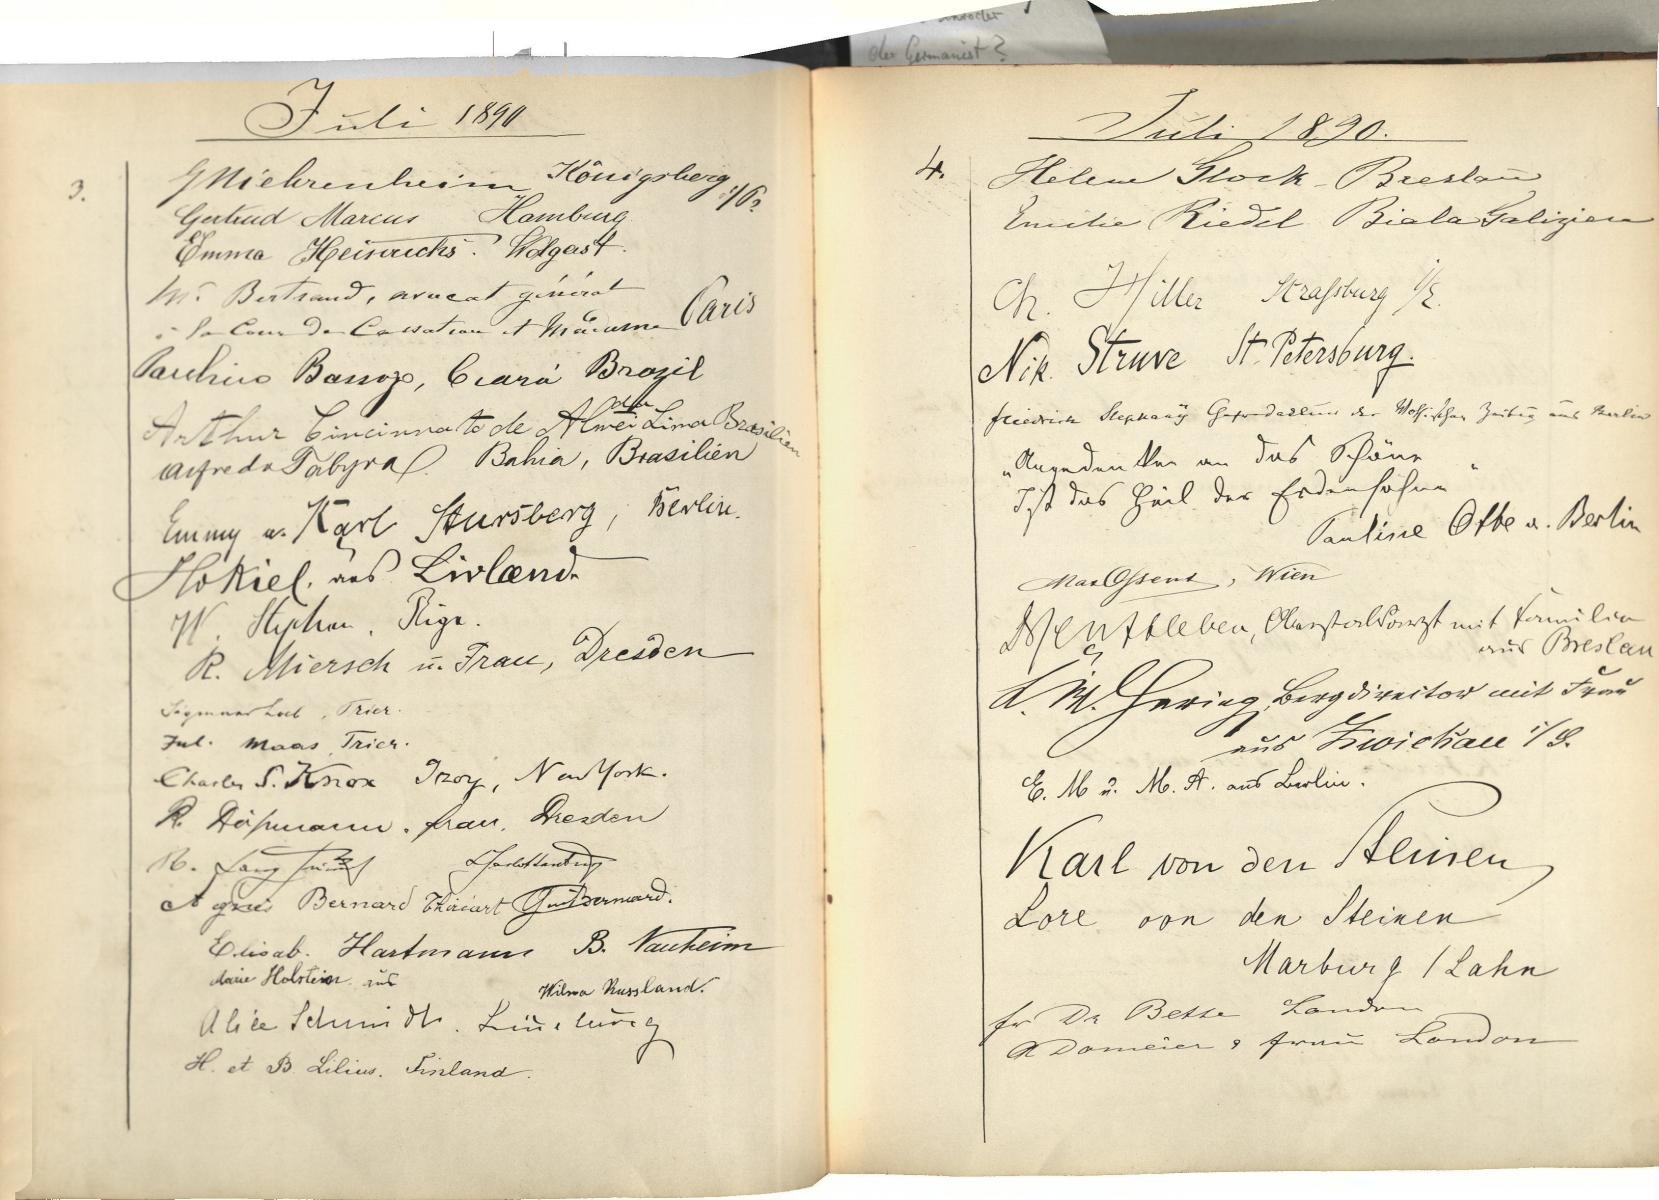 der Germanist?
Juli 1890
3.
Königsberg i/P.
Gertrud Marcus Hamburg
Emma Heinrichs. Wolgast.
Mr. Bertrand, avocat général
à la Cour de Cassation et Madame Paris
Bassozo, Ceará Brazil
Arthur Cincinnato de Lima Brasilien
Alfredo Brasilien Bahia,
Emmy u. Karl Stursberg, Berlin.
aus Livland.
W. Stephan, Riga.
R. Miersch u. Frau, Dresden
Trier.
Jul. Maas, Trier.
Charles S. Knox Troy, New York.
R. Frau, Dresden
Charlottenburg
Agnes Bernard Thiriart Bernard.
Elisab. Hartmann B. Nauheim
Marie Holstein aus Wilna Russland.
Alice Schmidt. Lüneburg
H. et B. Lilius. Finland.
Juli 1890.
4.
Helene Stock - Breslau
Emilie Riedel Biala Galizien
Ch. Hiller Straßburg i/E.
Nik. Struve St. Petersburg.
Friedrich Stephany der Zeitung aus Berlin
„Angedenken an das Schöne
Ist das Heil der Erdensöhne"
Pauline Otte a. Berlin
Max Wien
Oberstabsarzt mit Familie
aus Breslau
Bergdirector mit Frau
aus Zwickau i/S.
E. M u. M. A. aus Berlin.
Karl von den Steinen
Lore von den Steinen
Marburg / Lahn
Dr London
Domeier & Frau London